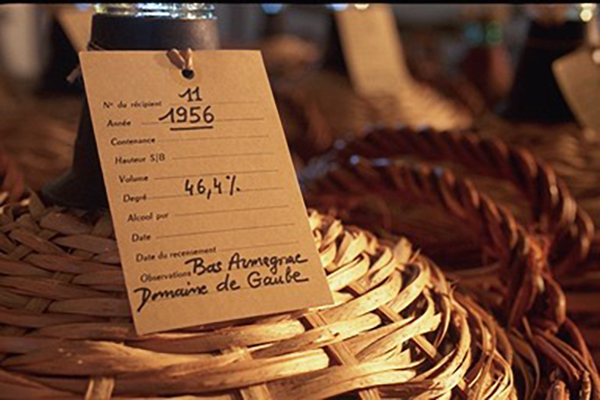 N° du récipient 11
Année 1956
Contenance
Hauteur S/B
Volume
Degré 46,4%.
Alcool pur
Date
Date du recensement
Observations Bas Armagnac
Domaine de Gaube